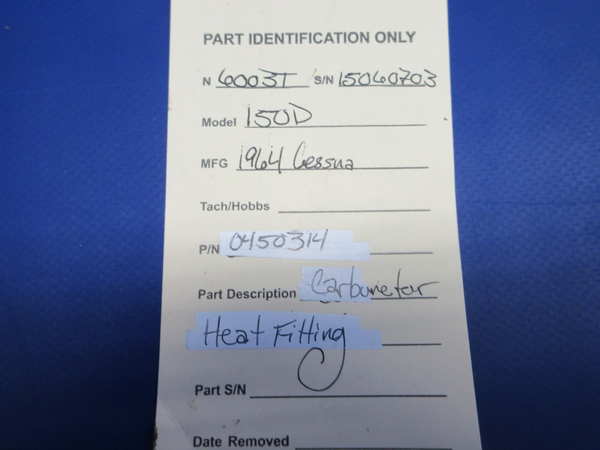 PART IDENTIFICATION ONLY
N 6003T S/N 15060703
Model 150D
MFG 1964 Cessna
Tach/Hobbs
P/N 0450314
Part Description Carburetor
Heat Fitting
Part S/N
Date Removed